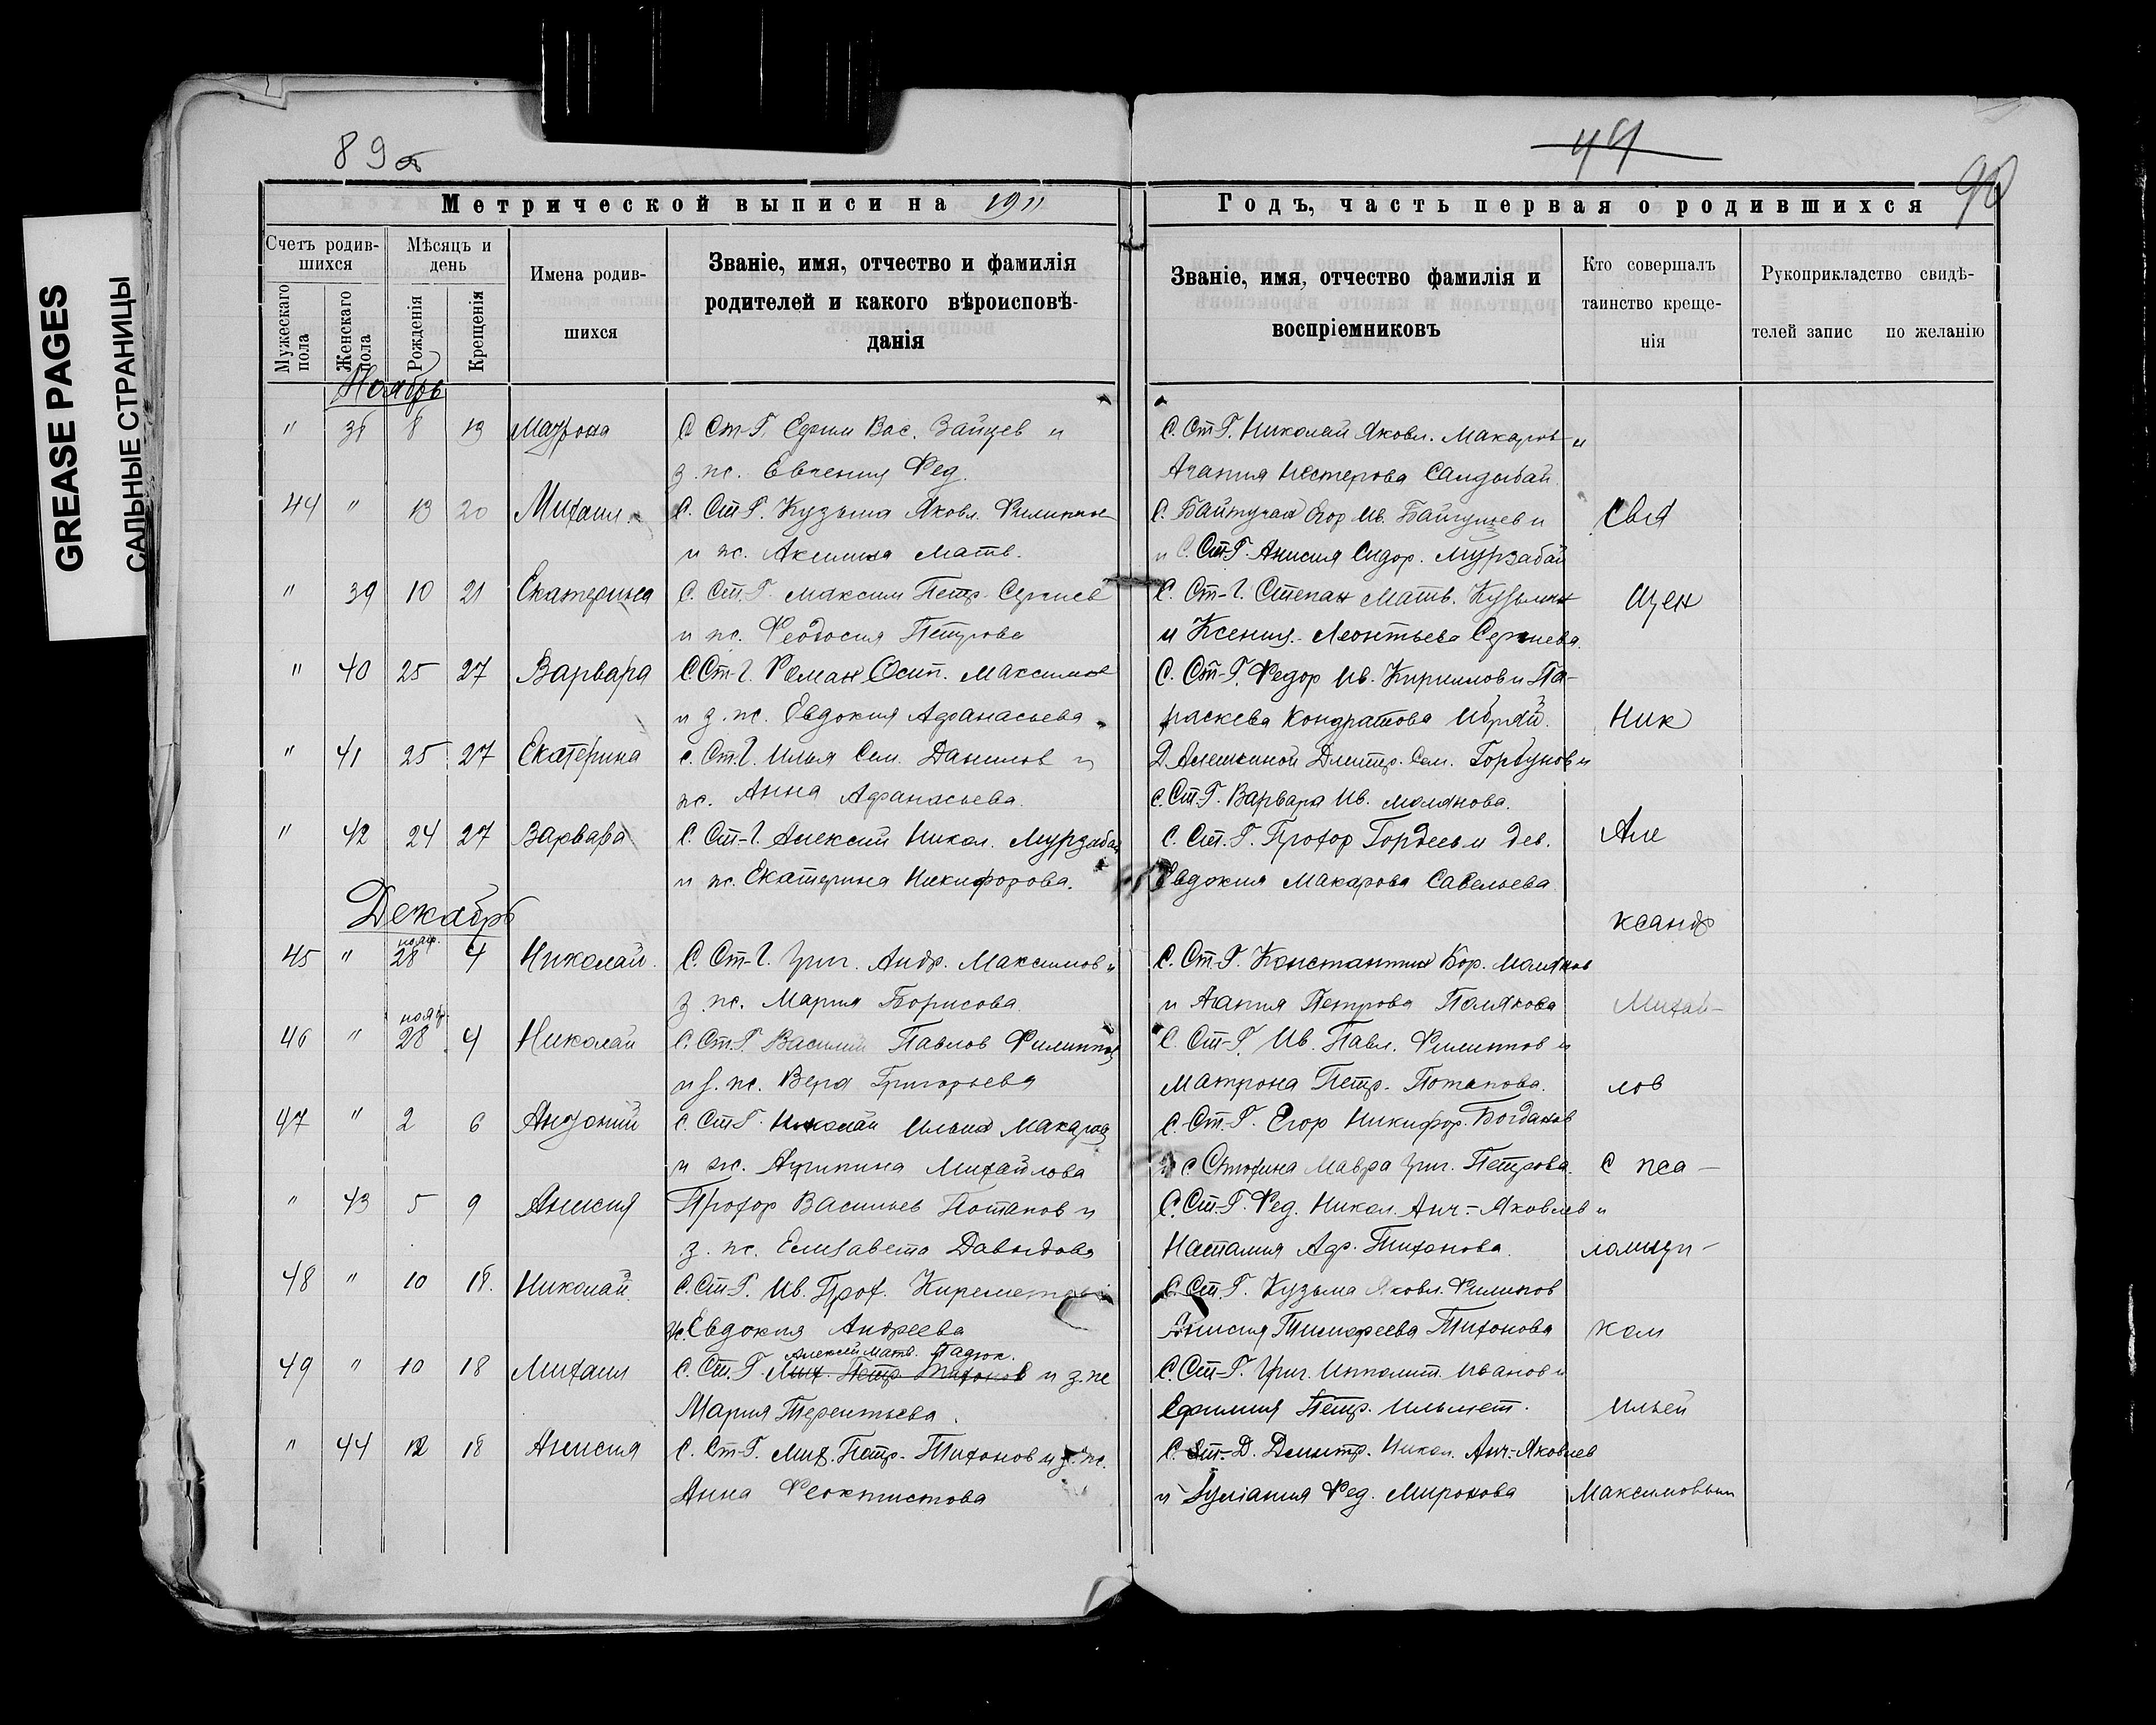 GREASE PAGES
САЛЬНЫЕ СТРАНИЦЫ
89 об
44
90
Метрической выписи на 1911
Годъ, часть первая о родившихся
Счетъ родив-
шихся
Мѣсяцъ и
день
Имена родив-
шихся
Званіе, имя, отчество и фамилія
родителей и какого вѣроисповѣ-
данія
Мужескаго
пола
Женскаго
пола
Рожденія
Крещенія
Званіе, имя, отчество фамилія и
воспріемниковъ
Кто совершалъ
таинство креще-
нія
Рукоприкладство свидѣ-
телей запис по желанію
Ноябрь
" 8 13 С. Ст-Г. Ефим Вас. Зайцев и
С. Ст-Г. Николай Яковл. Макаров и
з. ж. Евгения Фед.
Агания Нестерова Салдыбай.
44 " 13 20 Михаил С. Ст-Г. Кузьма Яковл. Филиппов
С. Байтуган Егор Ив. и
Свя
и ж. Акилина Матв.
и С. Ст-Г. Анисия Сидор. Мурзабай
" 39 10 21 Екатерина С. Ст-Г. Максим Петр. Сергиев
С. Ст-Г. Степан Матв. Кузьмин
щен
и ж. Феодосия Петрова
и Ксения Леонтьева Сергиева.
" 40 25 27 Варвара С. Ст-Г. Роман Осип. Максимов
С. Ст-Г. Федор Ив. Кириллов и Па-
и з. ж. Евдокия Афанасьева
раскева Кондратова
Ник
" 41 25 27 Екатерина С. Ст-Г. Илья Сем. Данилов и
Д. Алешкиной Дмитр. Сем. Горбунов и
ж. Анна Афанасьева.
С. Ст-Г. Варвара Ив. Молянова.
" 42 24 27 Варвара С. Ст-Г. Алексий Никол. Мурзабай
С. Ст-Г. Прохор Гордеев и дев.
Але
и ж. Екатерина Никифорова.
Евдокия Макарова Савельева
Декабрь
ксандр
45 " нояб. 28 4 Николай С. Ст-Г. Григ. Андр. Максимов и
С. Ст-Г. Константин Бор. Молянов
з. ж. Мария Борисова
и Агания Петрова Полякова
Михай-
46 " нояб. 28 4 Николай С. Ст-Г. Василий Павлов Филиппов
С. Ст-Г. Ив. Павл. Филиппов и
и з. ж. Вера Григорьева
Матрона Петр. Потапова.
лов
47 " 2 6 Антоний С. Ст-Г. Николай Ильин Макаров
С. Ст-Г. Егор Никифор. Богданов
и ж. Агрипина Михайлова
Мавра Григ. Петрова.
с пса-
" 43 5 9 Анисия Прохор Васильев Потапов и
С. Ст-Г. Фед. Никол. Анч.-Яковлев и
з. ж. Елизавета Давыдова
Наталия Адр. Тихонова.
ломщи-
48 " 10 18. Николай С. Ст-Г. Ив. Прох.
С. Ст-Г. Кузьма Яковл. Филипов
ж. Евдокия Андреева
Анисия Тимофеева Тихонова
ком
49 " 10 18 Михаил С. Ст-Г. Мих. Петр. Тихонов и з. ж
Алексий Матв.
С. Ст-Г. Григ. Ипполит. Иванов и
Мария Терентьева.
Ефимия Петр. Ильмет.
Ильей
" 44 12 18 Анисия С. Ст-Г. Мих. Петр. Тихонов и з. ж.
С. Ст-Д. Дмитр. Никол. Анч.-Яковлев
Анна Феоктистова
и Иулiания Фед. Миронова
Максимовым